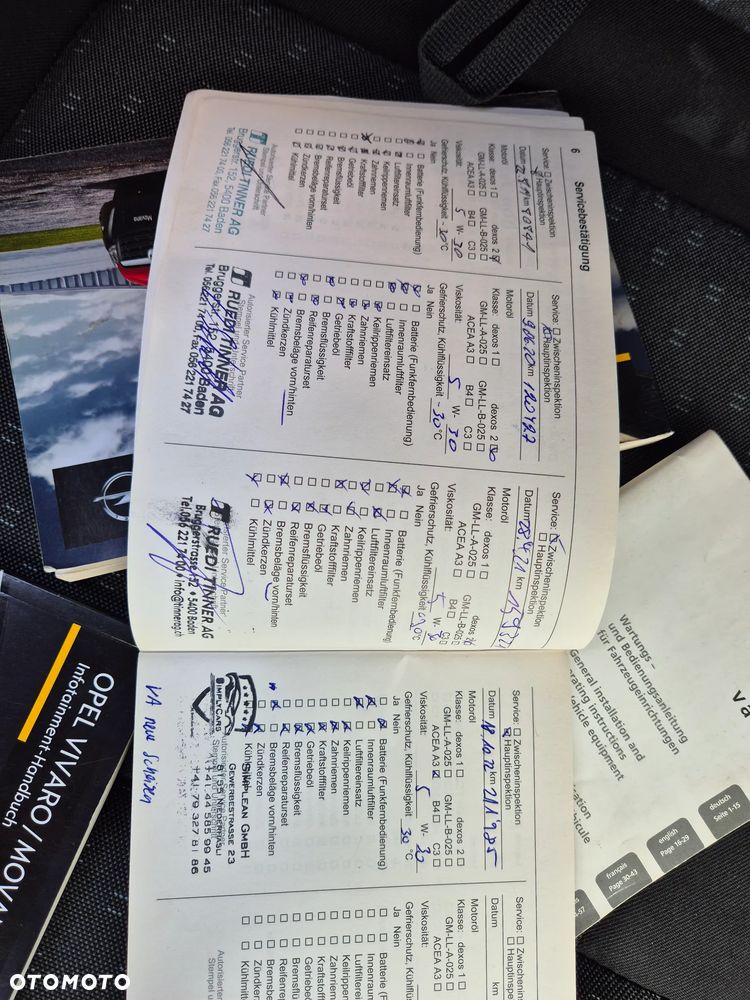 6 Servicebestätigung
Service: □ Zwischeninspektion
Hauptinspektion
Datum km 90841
Motoröl
Klasse: dexos 1 □ dexos 2
GM-LL-A-025 □ GM-LL-B-025 □
ACEA A3 □ B4 □ C3 □
Viskosität: 5 W- 30
Gefrierschutz, Kühlflüssigkeit -30 °C
Ja Nein
Batterie (Funkfernbedienung)
Innenraumluftfilter
Luftfiltereinsatz
Keilrippenriemen
Zahnriemen
Kraftstofffilter
Getriebeöl
Bremsflüssigkeit
Reifenreparaturset
Bremsbeläge vorn/hinten
Zündkerzen
Kühlmittel
Autorisierter Service Partner
RUEDI TINNER AG
Bruggerstr. 152, 5400 Baden
Tel. 056 221 74 00, Fax 056 221 74 27
Service: □ Zwischeninspektion
Hauptinspektion
Datum km 120427
Motoröl
Klasse: dexos 1 □ dexos 2
GM-LL-A-025 □ GM-LL-B-025 □
ACEA A3 □ B4 □ C3 □
Viskosität: 5 W- 30
Gefrierschutz, Kühlflüssigkeit -30 °C
Ja Nein
Batterie (Funkfernbedienung)
Innenraumluftfilter
Luftfiltereinsatz
Keilrippenriemen
Zahnriemen
Kraftstofffilter
Getriebeöl
Bremsflüssigkeit
Reifenreparaturset
Bremsbeläge vorn/hinten
Zündkerzen
Kühlmittel
Autorisierter Service Partner
RUEDI TINNER AG
Bruggerstr. 152, 5400 Baden
Tel. 056 221 74 00, Fax 056 221 74 27
Service: Zwischeninspektion
□ Hauptinspektion
Datum 28.4.21 km
Motoröl
Klasse: dexos 1 □ dexos 2
GM-LL-A-025 □ GM-LL-B-025 □
ACEA A3 □ B4 □ C3 □
Viskosität: 5 W- 30
Gefrierschutz, Kühlflüssigkeit °C
Ja Nein
Batterie (Funkfernbedienung)
Innenraumluftfilter
Luftfiltereinsatz
Keilrippenriemen
Zahnriemen
Kraftstofffilter
Getriebeöl
Bremsflüssigkeit
Reifenreparaturset
Bremsbeläge vorn/hinten
Zündkerzen
Kühlmittel
RUEDI TINNER AG
Bruggerstrasse 152 • 5400 Baden
Tel. 056 221 74 00 • info@tinnerag.ch
Service: □ Zwischeninspektion
Hauptinspektion
Datum 18.10.22 km
Motoröl
Klasse: dexos 1 □ dexos 2 □
GM-LL-A-025 □ GM-LL-B-025 □
ACEA A3 B4 □ C3 □
Viskosität: 5 W- 30
Gefrierschutz, Kühlflüssigkeit 30 °C
Ja Nein
Batterie (Funkfernbedienung)
Innenraumluftfilter
Luftfiltereinsatz
Keilrippenriemen
Zahnriemen
Kraftstofffilter
Getriebeöl
Bremsflüssigkeit
Reifenreparaturset
Bremsbeläge vorn/hinten
Zündkerzen
Kühlmittel
SIMPLYCARS
SIMPLEAN GMBH
GEWERBESTRASSE 23
8155 NIEDERHASLI
+41 44 585 99 45
+41 79 327 81 86
VA neu Scheiben
Service: □ Zwischen
□ Hauptinspe
Datum km
Motoröl
Klasse: dexos 1 □
GM-LL-A-025
ACEA A3 □
Viskosität:
Gefrierschutz, Kühlflüssi
Ja Nein
□ □ Batterie (Funkf
□ □ Innenraum
□ □ Luftfilterein
□ □ Keilrippenr
□ □ Zahnrieme
□ □ Kraftstofff
□ □ Getriebeö
□ □ Bremsflüs
□ □ Reifenrepa
□ □ Bremsbe
□ □ Zündkerz
□ □ Kühlmitt
Autorisierter
Stempel u
Movano
OPEL VIVARO / MOVA
Infotainment-Handbuch
Wartungs –
und Bedienungsanleitung
für Fahrzeugeinrichtungen
General installation and
operating instructions
vehicle equipment
deutsch
Seite 1-15
english
Page 16-29
français
Page 30-43
OTOMOTO